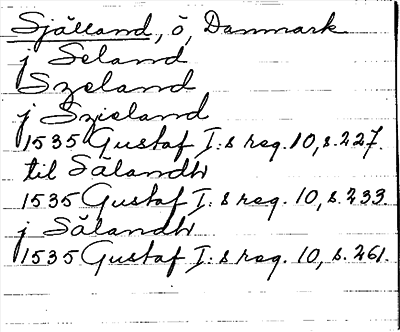 Sjælland, ö, Danmark
j Seland
Szeland
j Szieland
1535 Gustaf I:s reg. 10, s. 227.
til Sålandh
1535 Gustaf I:s reg. 10, s. 233.
j Sålandh
1535 Gustaf I:s reg. 10, s. 261.